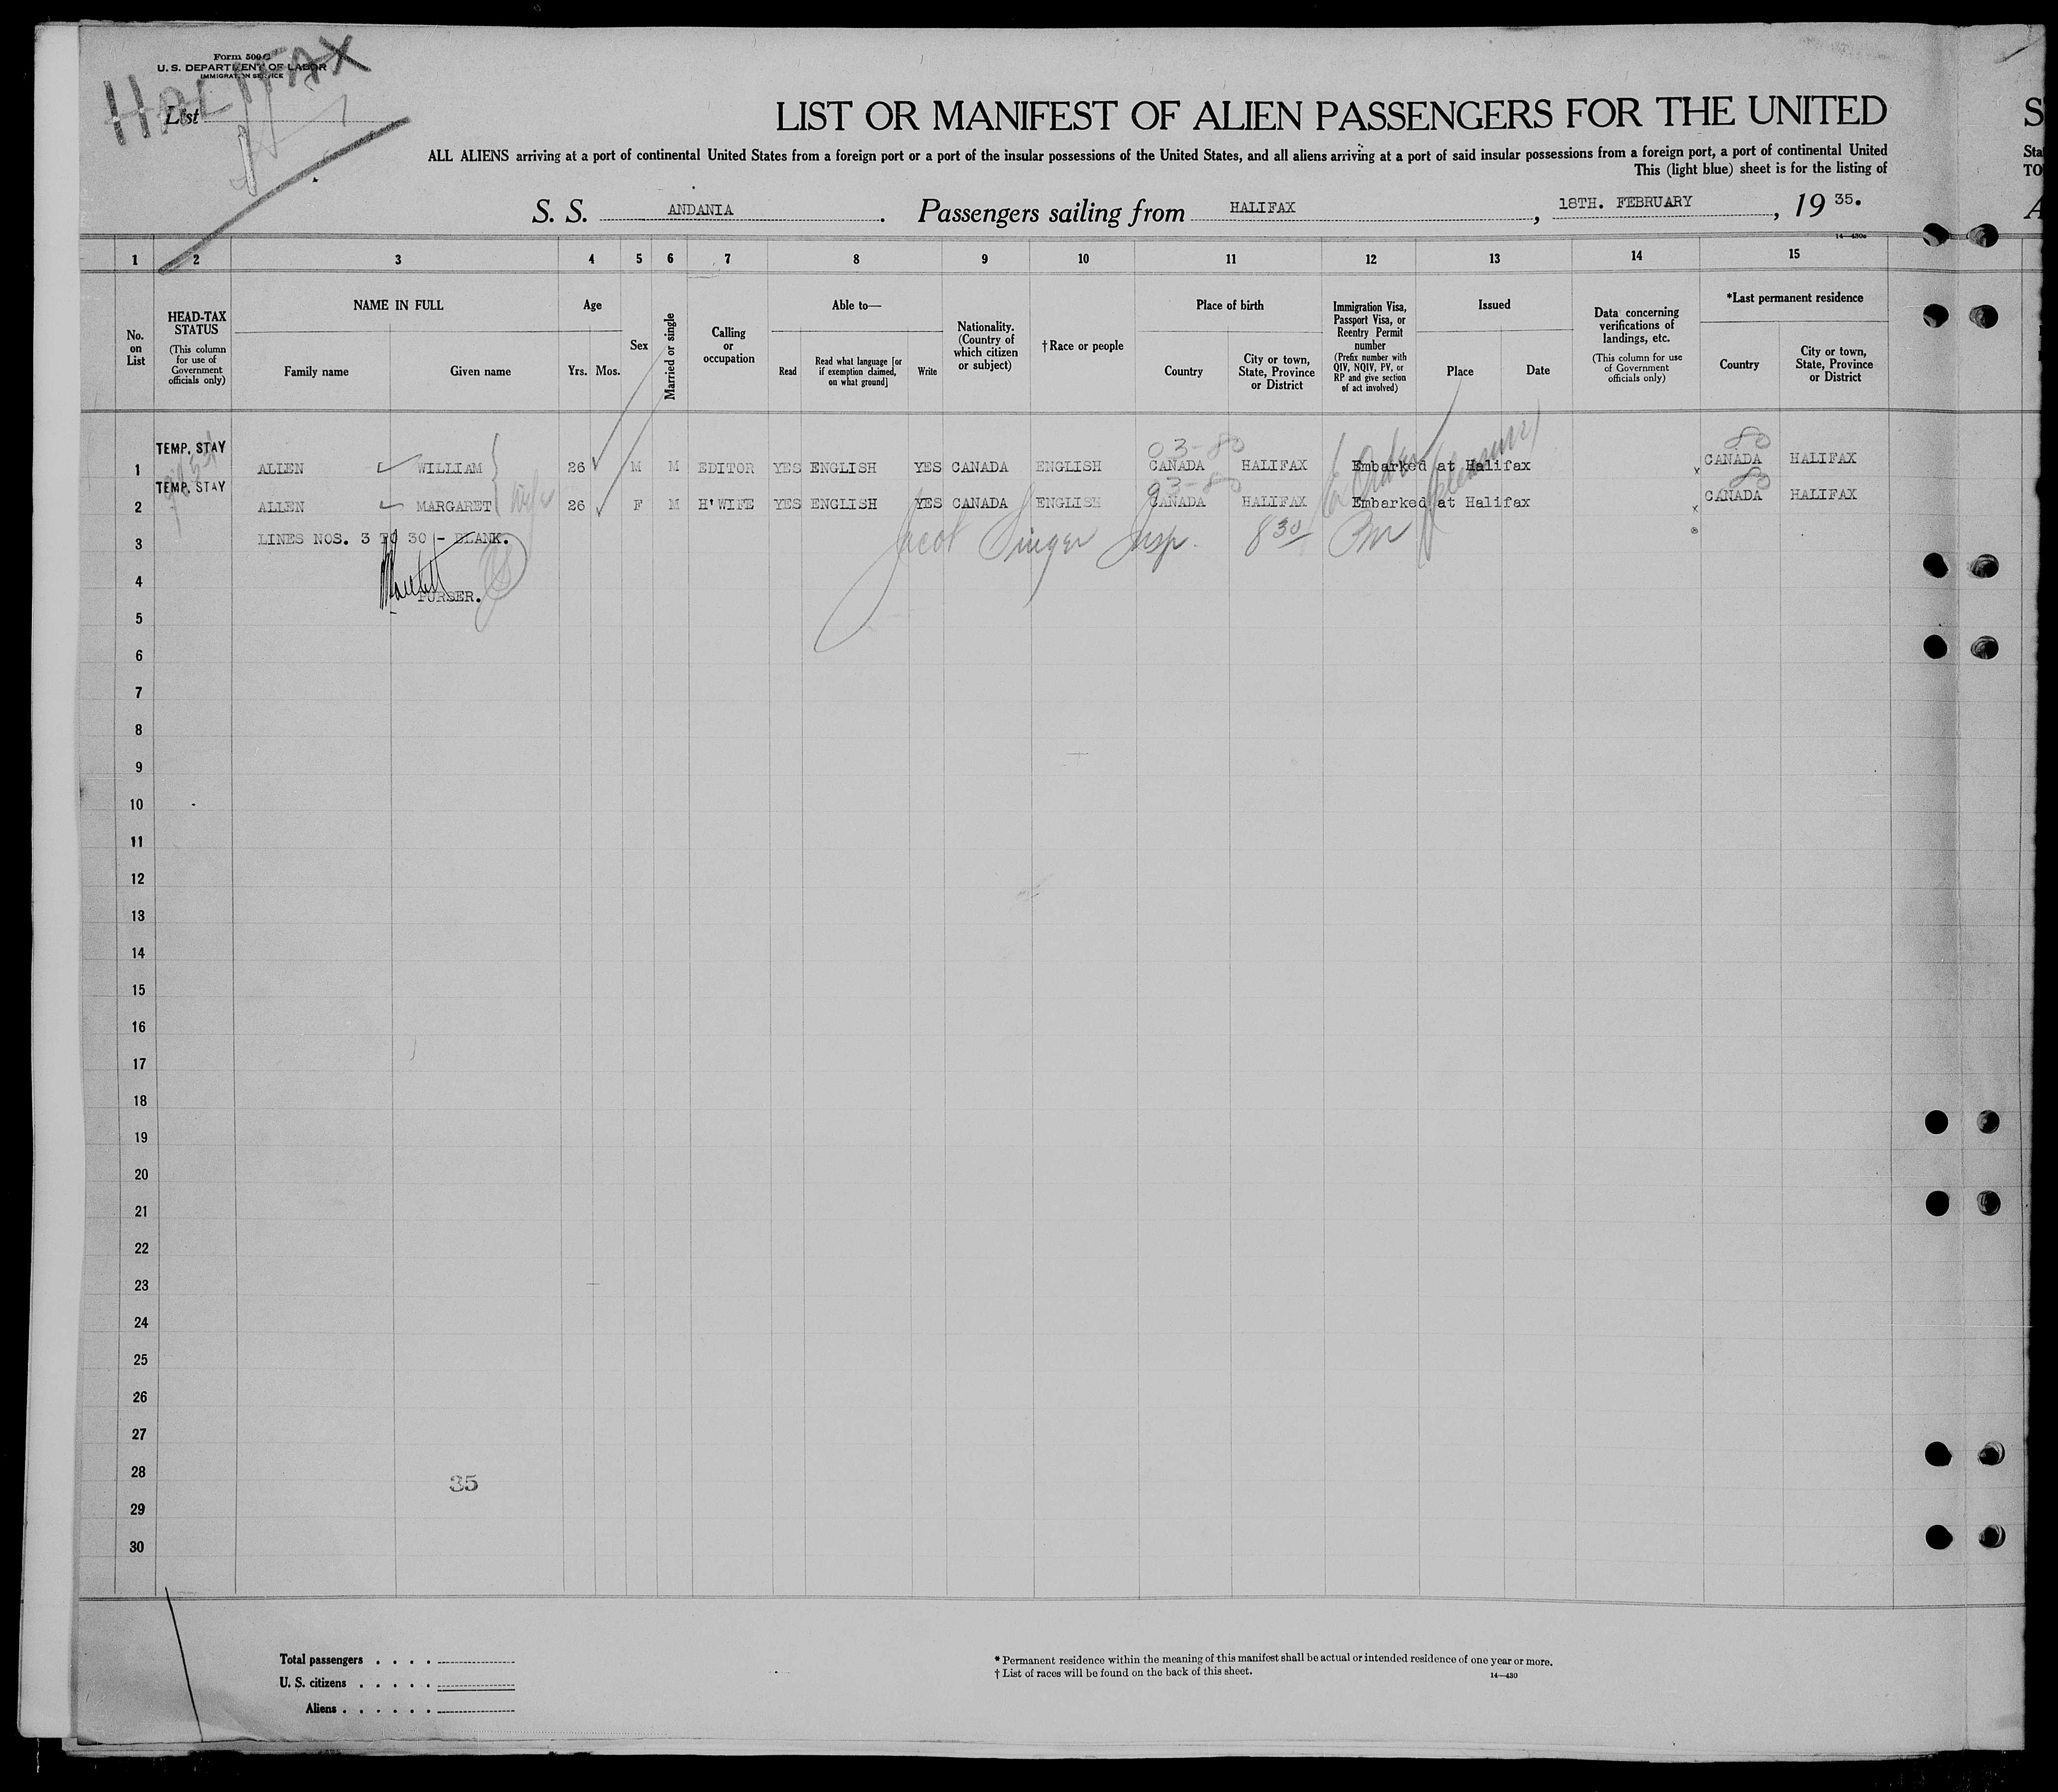 Form 500 C
U. S. DEPARTMENT OF LABOR
IMMIGRATION SERVICE
HALIFAX
List
LIST OR MANIFEST OF ALIEN PASSENGERS FOR THE UNITED
S
ALL ALIENS arriving at a port of continental United States from a foreign port or a port of the insular possessions of the United States, and all aliens arriving at a port of said insular possessions from a foreign port, a port of continental United
Sta
This (light blue) sheet is for the listing of
TO
S. S. ANDANIA. Passengers sailing from HALIFAX, 18TH. FEBRUARY, 19 35.
A
14—430a
1 2 3 4 5 6 7 8 9 10 11 12 13 14 15
No. on List
HEAD-TAX STATUS
(This column for use of Government officials only)
NAME IN FULL
Family name Given name
Age
Yrs. Mos.
Sex
Married or single
Calling or occupation
Able to—
Read
Read what language [or if exemption claimed, on what ground]
Write
Nationality. (Country of which citizen or subject)
† Race or people
Place of birth
Country
City or town, State, Province or District
Immigration Visa, Passport Visa, or Reentry Permit number
(Prefix number with QIV, NQIV, PV, or RP and give section of act involved)
Issued
Place Date
Data concerning verifications of landings, etc.
(This column for use of Government officials only)
*Last permanent residence
Country
City or town, State, Province or District
TEMP. STAY 03-80 80
1 ALLEN WILLIAM 26 M M EDITOR YES ENGLISH YES CANADA ENGLISH CANADA HALIFAX Embarked at Halifax x CANADA HALIFAX
TEMP. STAY 03-80 80
2 ALLEN MARGARET wife 26 F M H'WIFE YES ENGLISH YES CANADA ENGLISH CANADA HALIFAX Embarked at Halifax x CANADA HALIFAX
3 LINES NOS. 3 TO 30 - BLANK. Jacob Singer Insp. 8 30 PM
4
PURSER.
5
6
7
8
9
10
11
12
13
14
15
16
17
18
19
20
21
22
23
24
25
26
27
28
35
29
30
Total passengers . . . .
U. S. citizens . . . . .
Aliens . . . . . .
* Permanent residence within the meaning of this manifest shall be actual or intended residence of one year or more.
† List of races will be found on the back of this sheet.
14—430